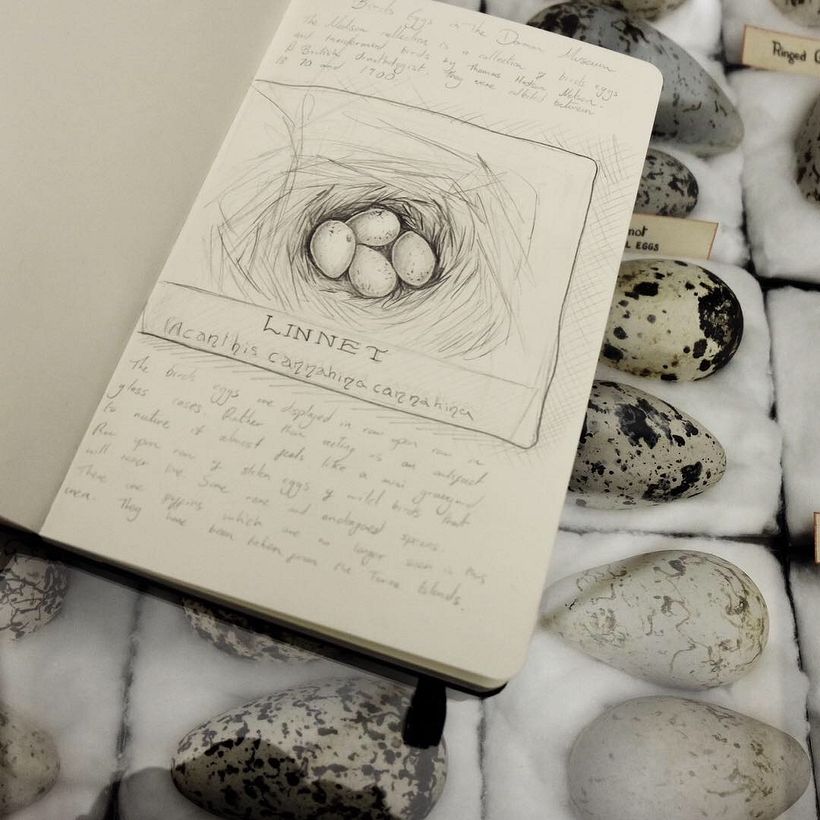 Birds Eggs in the Dorman Museum
The Nelson collection is a collection of birds eggs
and transformed birds by Thomas Hudson Nelson.
A British ornithologist. They were collected between
18 70 and 1900
LINNET
(Acanthis cannabina cannabina
The birds eggs are displayed in row upon row in
glass cases. Rather than nesting is an
to nature it almost feels like a mini graveyard
Row upon row of stolen eggs of wild birds that
will never live. Some rare and endangered species.
There are puffins which are no longer seen in this
area. They have been taken from the Farne Islands.
Ringed
not
L EGGS